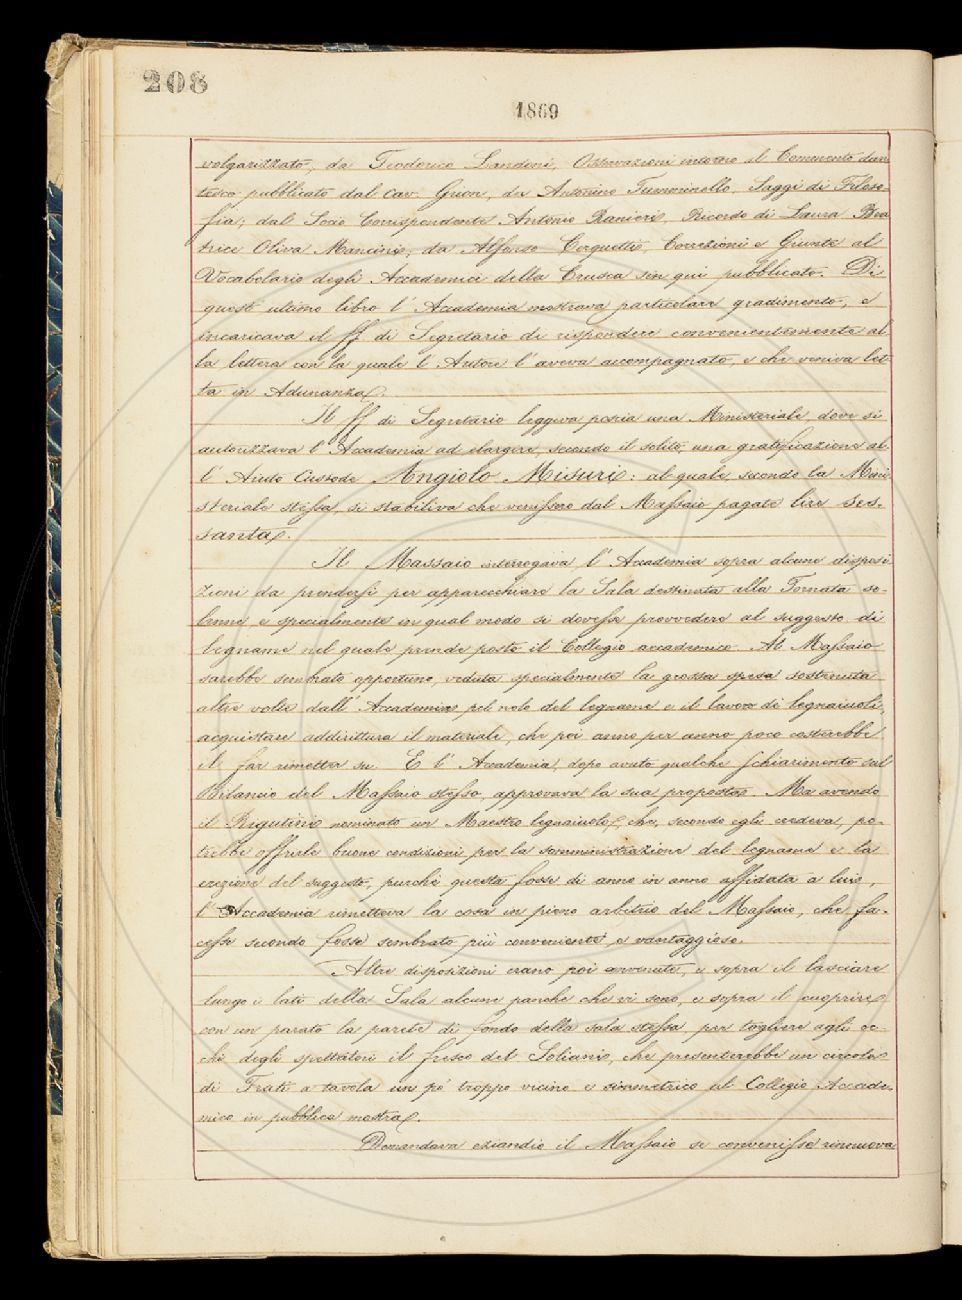 208
1869
volgarizzato, da Teodorico Landoni, Osservazioni intorno al Comento dan
tesco pubblicato dal Cav. Grion, da Antonino Saggi di Filoso-
fia; dal Socio Corrispondente Antonio Ranieri, Ricordo di Laura Bea
trice Oliva Mancini, da Alfonso Cerquetti, Correzioni e Giunte al
Vocabolario degli Accademici della Crusca sin qui pubblicato. Di
quest' ultimo libro l' Accademia mostrava particolare gradimento, e
incaricava il ff di Segretario di rispondere convenientemente al
la lettera con la quale l' Autore l' aveva accompagnato, e che veniva let
ta in Adunanza.
Il ff di Segretario leggeva poscia una Ministeriale dove si
autorizzava l' Accademia ad elargire, secondo il solito, una gratificazione al
l' Aiuto Custode Angiolo Misuri: al quale, secondo la Mini
steriale stessa, si stabiliva che venissero dal Massaio pagate lire ses.
santa.
Il Massaio interrogava l' Accademia sopra alcune disposi
zioni da prendersi per apparecchiare la Sala destinata alla Tornata so-
lenne, e specialmente in qual modo si dovesse provvedere al suggesto di
legname nel quale prende posto il Collegio accademico. Al Massaio
sarebbe sembrato opportuno, veduta specialmente la grossa spesa sostenuta
altre volte dall' Accademia pel nolo del legname e il lavoro di legnaiuoli,
acquistare addirittura il materiale, che poi anno per anno poco costerebbe
il far rimetter su. E l' Accademia, dopo avuto qualche schiarimento sul
Bilancio del Massaio stesso, approvava la sua proposta. Ma avendo
il Rigutini nominato un Maestro legnaiuolo, che, secondo egli credeva, po-
trebbe offrirle buone condizioni per la somministrazione del legname e la
erezione del suggesto, purchè questa fosse di anno in anno affidata a lui,
l' Accademia rimetteva la cosa in pieno arbitrio del Massaio, che fa-
cesse secondo fosse sembrato più conveniente e vantaggioso.
Altre disposizioni erano poi convenute, e sopra il lasciare
lungo i lati della Sala alcune panche che vi sono, e sopra il cuoprire
con un parato la parete di fondo della sala stessa, per togliere agli oc-
chi degli spettatori il fresco del Soliani, che presenterebbe un circolo
di Frati a tavola un po' troppo vicino e simmetrico al Collegio Accade.
mico in pubblica mostra.
Domandava eziandio il Massaio se convenisse rinnuova